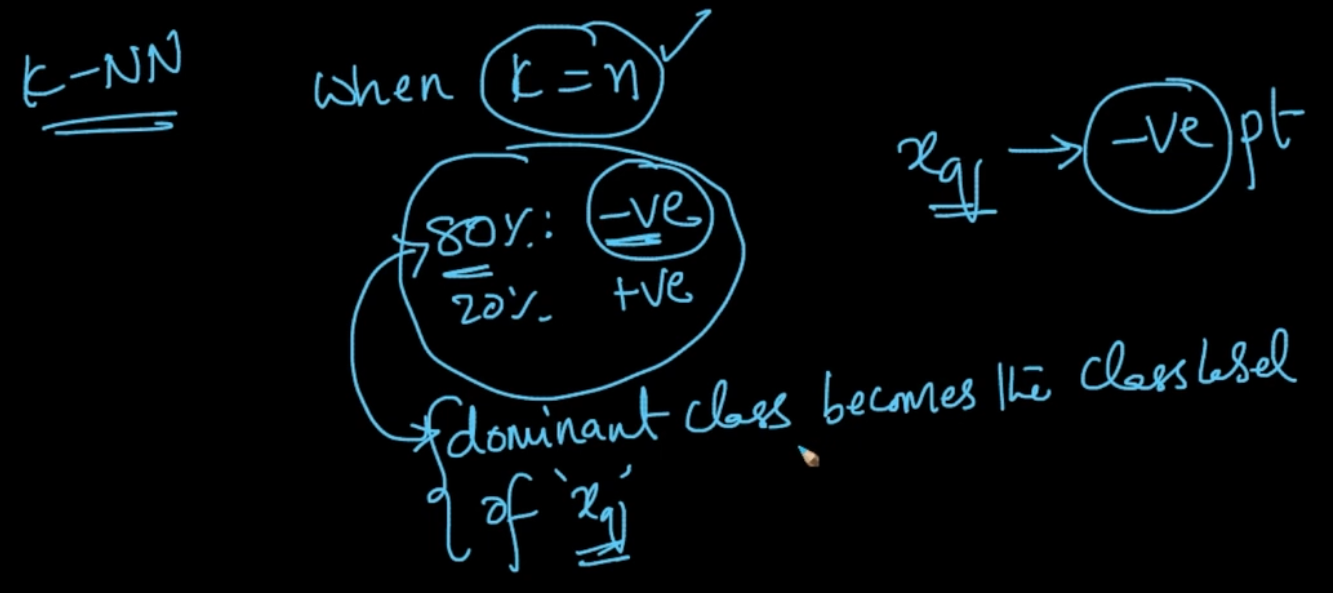 K-NN when K=n ✓
xq → -ve pt
80%: -ve
20%. +ve
dominant class becomes the class label
of 'xq'